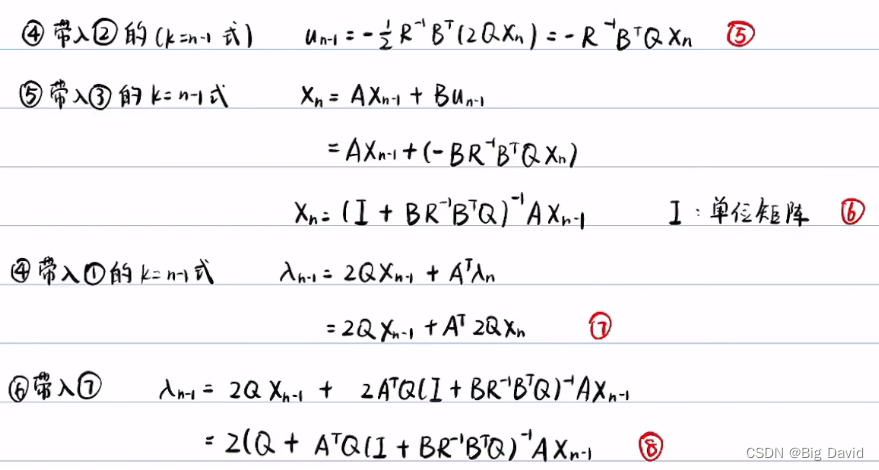 ④ 带入②的(k=n-1 式) u_{n-1} = -\frac{1}{2}R^{-1}B^T(2QX_n) = -R^{-1}B^TQX_n ⑤
⑤ 带入③的 k=n-1式 X_n = AX_{n-1} + Bu_{n-1}
= AX_{n-1} + (-BR^{-1}B^TQX_n)
X_n = (I + BR^{-1}B^TQ)^{-1}AX_{n-1} I:单位矩阵 ⑥
④ 带入①的 k=n-1式 λ_{n-1} = 2QX_{n-1} + A^Tλ_n
= 2QX_{n-1} + A^T2QX_n ⑦
⑥带入⑦ λ_{n-1} = 2QX_{n-1} + 2A^TQ(I + BR^{-1}B^TQ)^{-1}AX_{n-1}
= 2(Q + A^TQ(I + BR^{-1}B^TQ)^{-1}AX_{n-1} ⑧
CSDN @Big David